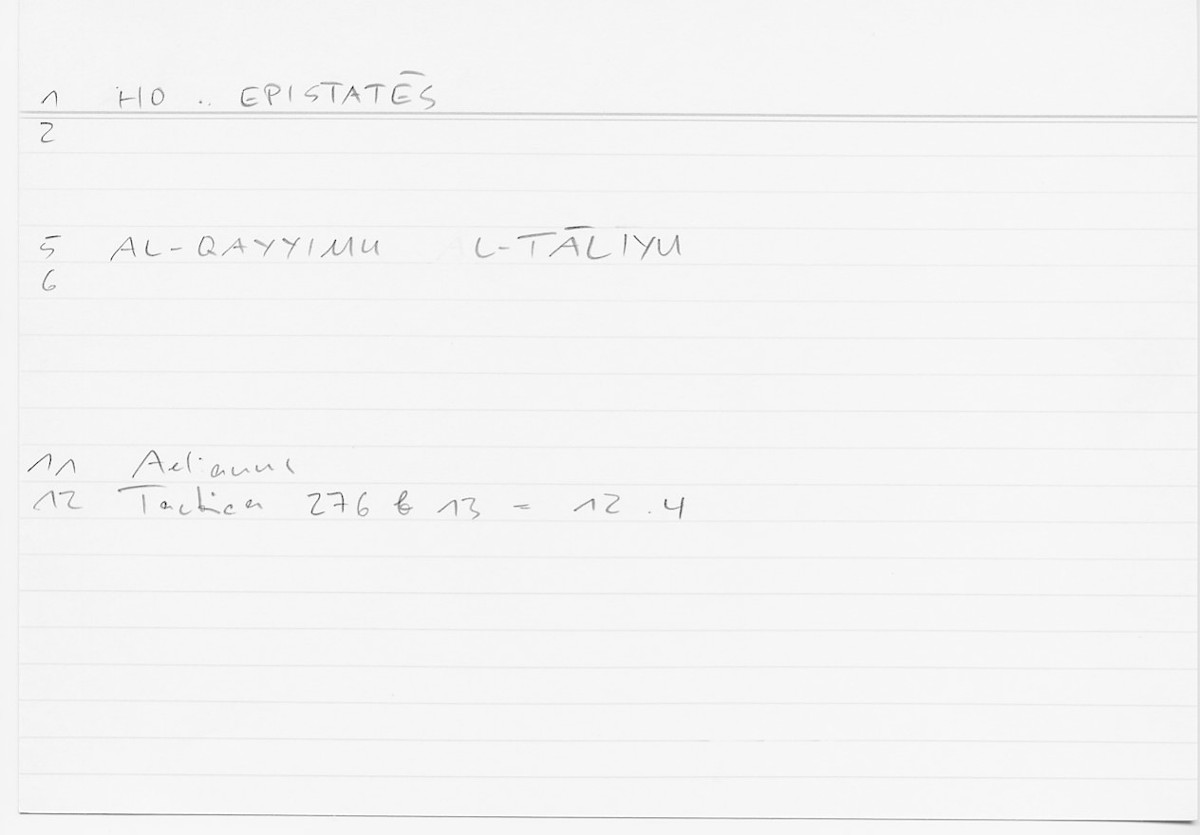 1 HO .. EPISTATĒS
2
5 AL-QAYYIMU L-TĀLIYU
6
11 Aelianus
12 Tactica 276 b 13 = 12.4